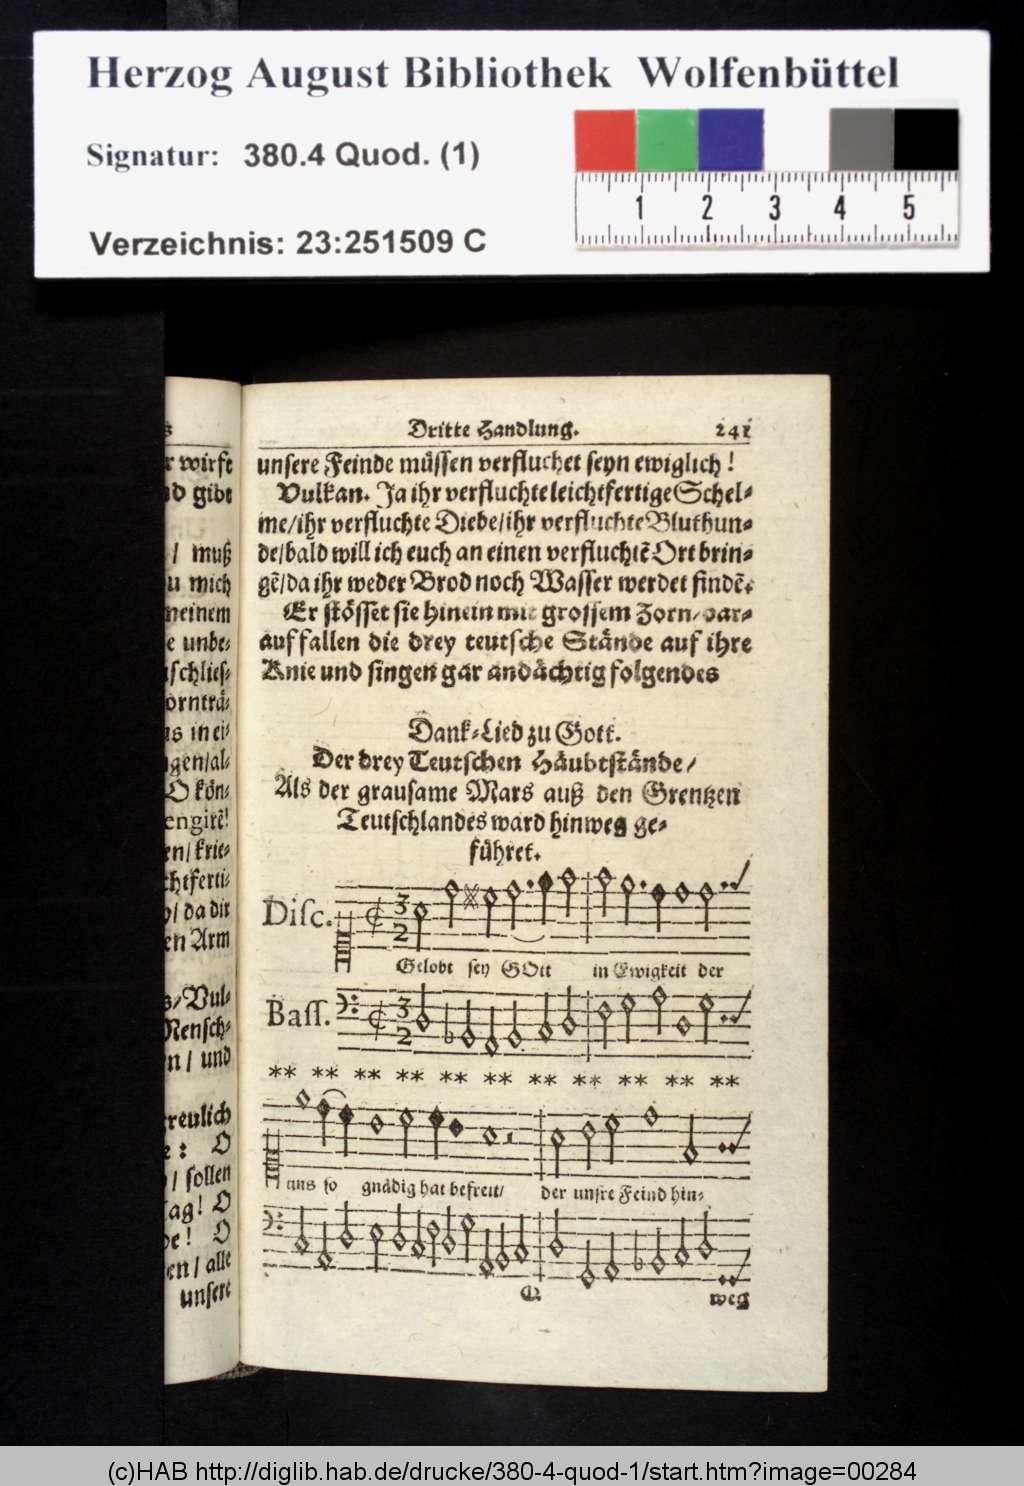 Herzog August Bibliothek Wolfenbüttel
Signatur: 380.4 Quod. (1)
Verzeichnis: 23:251509 C
1 2 3 4 5
wirft
gibt
/ muß
mich
unbe⸗
in ei⸗
/ da dir
Arm
/ und
O
/ sollen
! O
! O
/ alle
unsere
Dritte Handlung. 241
unsere Feinde müssen verfluchet seyn ewiglich!
Vulkan. Ja ihr verfluchte leichtfertige Schel⸗
me/ihr verfluchte Diebe/ihr verfluchte Bluthun⸗
de/bald will ich euch an einen verfluchtē Ort brin⸗
gē/da ihr weder Brod noch Wasser werdet findē.
Er stösset sie hinein mit grossem Zorn/dar⸗
auf fallen die drey teutsche Stände auf ihre
Knie und singen gar andächtig folgendes
Dank⸗Lied zu Gott.
Der drey Teutschen Häubtstände/
Als der grausame Mars auß den Grentzen
Teutschlandes ward hinweg ge⸗
führet.
Disc.
3
2
Gelobt sey GOtt in Ewigkeit der
Bass.
3
2
** ** ** ** ** ** ** ** ** ** **
uns so gnädig hat befreit/ der unsre Feind hin⸗
Q weg
(c)HAB http://diglib.hab.de/drucke/380-4-quod-1/start.htm?image=00284